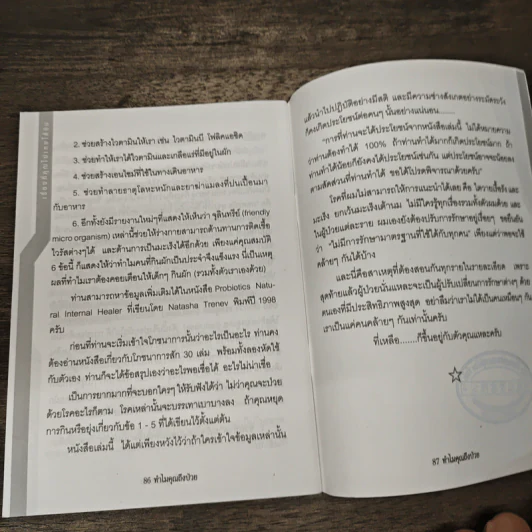 2. ช่วยสร้างไวตามินให้เรา เช่น ไวตามินบี โฟลิคแอซิด
3. ช่วยทำให้เราได้ไวตามินและเกลือแร่ที่มีอยู่ในผัก
4. ช่วยสร้างเอนไซม์ที่ใช้ในทางเดินอาหาร
5. ช่วยทำลายธาตุโลหะหนักและยาฆ่าแมลงที่ปนเปื้อนมา
กับอาหาร
6. อีกทั้งยังมีรายงานใหม่ๆที่แสดงให้เห็นว่า จุลินทรีย์ (friendly
micro organism) เหล่านี้ช่วยให้ร่างกายสามารถต้านทานการติดเชื้อ
ไวรัสต่างๆได้ และต้านการเป็นมะเร็งได้อีกด้วย เพียงแค่คุณสมบัติ
6 ข้อนี้ ก็แสดงให้เห็นว่าทำไมคนที่กินผักเป็นประจำจึงแข็งแรง นี่เป็นเหตุ
ผลที่ทำไมเราต้องคอยเตือนให้เด็กๆ กินผัก (รวมทั้งตัวเราเองด้วย)
ท่านสามารถหาข้อมูลเพิ่มเติมได้ในหนังสือ Probiotics Natu-
ral Internal Healer ที่เขียนโดย Natasha Trenev พิมพ์ปี 1998
ครับ
ก่อนที่ท่านจะเริ่มเข้าใจโภชนาการนั้นว่าอะไรเป็นอะไร ท่านคง
ต้องอ่านหนังสือเกี่ยวกับโภชนาการสัก 30 เล่ม พร้อมทั้งลองหัดใช้
กับตัวเอง ท่านก็จะได้ข้อสรุปเองว่าอะไรพอเชื่อได้ อะไรไม่น่าเชื่อ
เป็นการยากมากที่จะบอกใครๆ ให้รับฟังได้ว่า ไม่ว่าคุณจะป่วย
ด้วยโรคอะไรก็ตาม โรคเหล่านั้นจะบรรเทาเบาบางลง ถ้าคุณหยุด
การกินหรือยุ่งเกี่ยวกับข้อ 1 - 5 ที่ได้เขียนไว้ตั้งแต่ต้น
หนังสือเล่มนี้ ได้แต่เพียงหวังไว้ว่าถ้าใครเข้าใจข้อมูลเหล่านั้น
86 ทำไมคุณถึงป่วย
แล้วนำไปปฏิบัติอย่างมีสติ และมีความช่างสังเกตอย่างระมัดระวัง
ก็คงเกิดประโยชน์ต่อคนๆ นั้นอย่างแน่นอน.......
"การที่ท่านจะได้ประโยชน์จากหนังสือเล่มนี้ ไม่ได้หมายความ
ว่าท่านต้องทำได้ 100% ถ้าท่านทำได้มากก็เกิดประโยชน์มาก ถ้า
ท่านทำได้น้อยก็ยังคงได้ประโยชน์เช่นกัน แต่ประโยชน์อาจจะน้อยลง
ตามสัดส่วนที่ท่านทำได้ ขอได้โปรดพิจารณาด้วยครับ"
โรคที่ผมไม่สามารถให้การแนะนำได้เลย คือ ไตวายเรื้อรัง และ
มะเร็ง ยกเว้นมะเร็งเต้านม ไม่มีใครรู้ทุกเรื่องรวมทั้งตัวผมด้วย และ
ในผู้ป่วยแต่ละราย ผมเองยังต้องปรับการรักษาอยู่เรื่อยๆ ขอยืนยัน
ว่า "ไม่มีการรักษามาตรฐานที่ใช้ได้กับทุกคน" เพียงแค่ว่าพอจะใช้
คล้ายๆ กันได้บ้าง
และนี่คือสาเหตุที่ต้องสอนกันทุกรายในรายละเอียด เพราะ
สุดท้ายแล้วผู้ป่วยนั่นแหละจะเป็นผู้รับเปลี่ยนการรักษาต่างๆ ด้วย
ตนเองที่มีประสิทธิภาพสูงสุด อย่าลืมว่าเราไม่ได้เป็นคนเหมือนๆ กัน
เราเป็นแค่คนคล้ายๆ กันเท่านั้นครับ
ที่เหลือ.......ก็ขึ้นอยู่กับตัวคุณแหละครับ
87 ทำไมคุณถึงป่วย